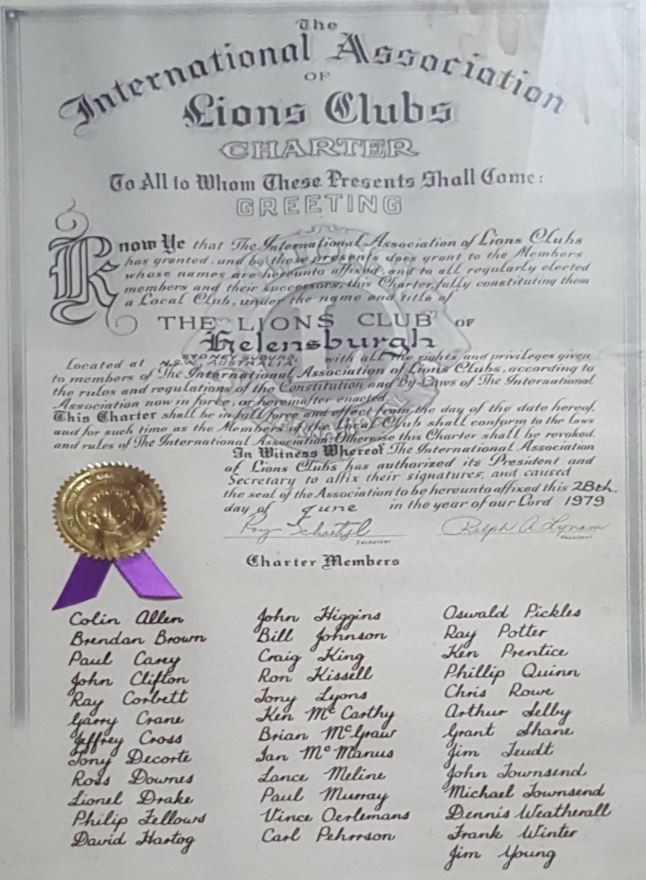 The
International Association
OF
Lions Clubs
CHARTER
To All to Whom These Presents Shall Come:
GREETING
Know Ye that The International Association of Lions Clubs
has granted, and by these presents does grant to the Members
whose names are hereunto affixed, and to all regularly elected
members and their successors, this Charter, fully constituting them
a Local Club, under the name and title of
THE LIONS CLUB OF
Helensburgh
SYDNEY SUBURB,
Located at N.S.W. AUSTRALIA. with all the rights and privileges given
to members of The International Association of Lions Clubs, according to
the rules and regulations of the Constitution and By-Laws of The International
Association now in force, or hereafter enacted.
This Charter shall be in full force and effect from the day of the date hereof,
and for such time as the Members of the Local Club shall conform to the laws
and rules of The International Association. Otherwise this Charter shall be revoked.
In Witness Whereof, The International Association
of Lions Clubs has authorized its President and
Secretary to affix their signatures, and caused
the seal of the Association to be hereunto affixed this 28th.
day of June in the year of our Lord 1979
Roy Schaetzel Ralph A. Lynam
SECRETARY PRESIDENT
Charter Members
Colin Allen
Brendan Brown
Paul Carey
John Clifton
Ray Corbett
Garry Crane
Jeffrey Cross
Tony Decorte
Ross Downes
Lionel Drake
Philip Fellows
David Hartog
John Higgins
Bill Johnson
Craig King
Ron Kissell
Tony Lyons
Ken McCarthy
Brian McGraw
Ian McManus
Lance Meline
Paul Murray
Vince Oerlemans
Carl Pehrrson
Oswald Pickles
Ray Potter
Ken Prentice
Phillip Quinn
Chris Rowe
Arthur Selby
Grant Shane
Jim Teudt
John Townsend
Michael Townsend
Dennis Weatherall
Frank Winter
Jim Young